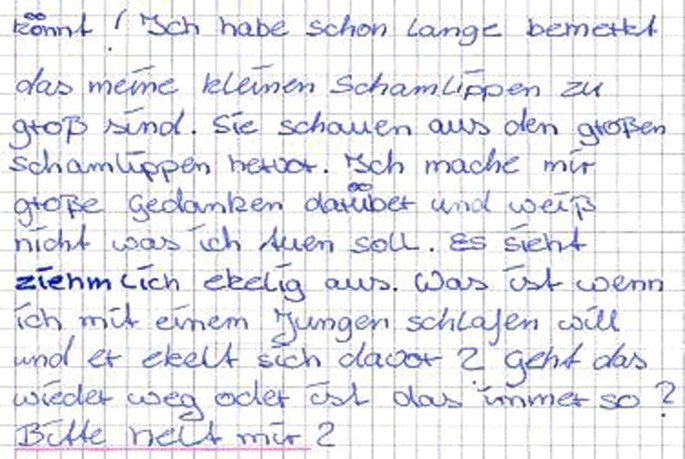 könnt! Ich habe schon lange bemerkt
das meine kleinen Schamlippen zu
groß sind. Sie schauen aus den großen
Schamlippen hervor. Ich mache mir
große Gedanken darüber und weiß
nicht was ich tuen soll. Es sieht
ziehmlich ekelig aus. Was ist wenn
ich mit einem Jungen schlafen will
und er ekelt sich davor? geht das
wieder weg oder ist das immer so?
Bitte helft mir?